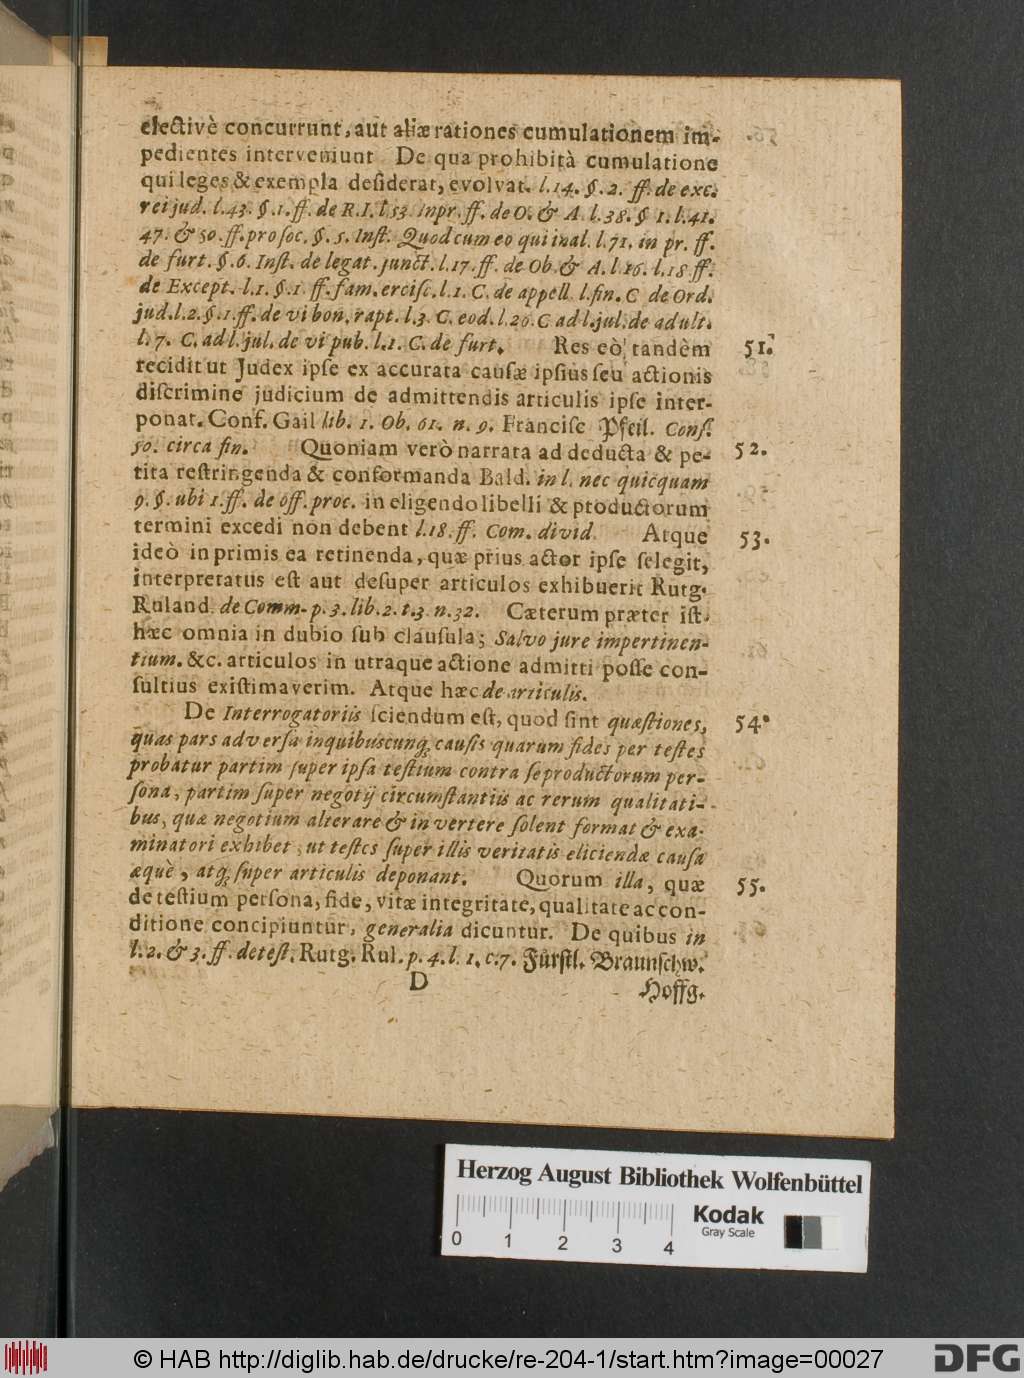 electivè concurrunt, aut aliæ rationes cumulationem im-
pedientes interveniunt De qua prohibità cumulatione
qui leges & exempla desiderat, evolvat. l. 14. §. 2. ff. de exc.
rei jud. l. 43. §. 1. ff. de R. I. l. 53. in pr. ff. de O. & A. l. 38. § 1. l. 41.
47. & 50. ff. pro soc. §. 5. Inst. Quod cum eo qui in al. l. 71. in pr. ff.
de furt. §. 6. Inst. de legat. junct. l. 17. ff. de Ob. & A. l. 16. l. 18 ff.
de Except. l. 1. §. 1 ff. fam. ercisc. l. 1. C. de appell. l. fin. C de Ord.
jud. l. 2. §. 1. ff. de vi bon. rapt. l. 3. C. eod. l. 20. C ad l. jul. de adult.
l. 7. C. ad l. jul. de vi pub. l. 1. C. de furt. Res eò tandèm 51.
recidit ut Judex ipse ex accurata causæ ipsius seu actionis
discrimine judicium de admittendis articulis ipse inter-
ponat. Conf. Gail lib. 1. Ob. 61. n. 9. Francisc Pfeil. Cons.
50. circa fin. Quoniam verò narrata ad deducta & pe- 52.
tita restringenda & conformanda Bald. in l. nec quicquam
9. §. ubi 1. ff. de off. proc. in eligendo libelli & productorum
termini excedi non debent l. 18. ff. Com. divid. Atque 53.
ideò in primis ea retinenda, quæ prius actor ipse selegit,
interpretatus est aut desuper articulos exhibuerit Rutg.
Ruland. de Comm. p. 3. lib. 2. t. 3. n. 32. Cæterum præter ist-
hæc omnia in dubio sub clausula; Salvo jure impertinen-
tium. &c. articulos in utraque actione admitti posse con-
sultius existimaverim. Atque hæc de articulis.
De Interrogatoriis sciendum est, quod sint quæstiones, 54.
quas pars adversa in quibuscunq; causis quarum fides per testes
probatur partim super ipsa testium contra se productorum per-
sona, partim super negotij circumstantiis ac rerum qualitati-
bus, quæ negotium alterare & invertere solent format & exa-
minatori exhibet, ut testes super illis veritatis eliciendæ causa
æquè, atq; super articulis deponant. Quorum illa, quæ 55.
de testium persona, fide, vitæ integritate, qualitate ac con-
ditione concipiuntur, generalia dicuntur. De quibus in
l. 2. & 3. ff. de test. Rutg. Rul. p. 4. l. 1. c. 7. Fürstl. Braunschw.
D Hoffg.
Herzog August Bibliothek Wolfenbüttel
0 1 2 3 4
Kodak
Gray Scale
© HAB http://diglib.hab.de/drucke/re-204-1/start.htm?image=00027
DFG